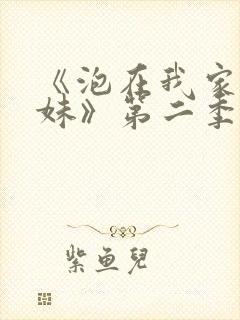 《泡在我家
妹》第二季
紫鱼儿